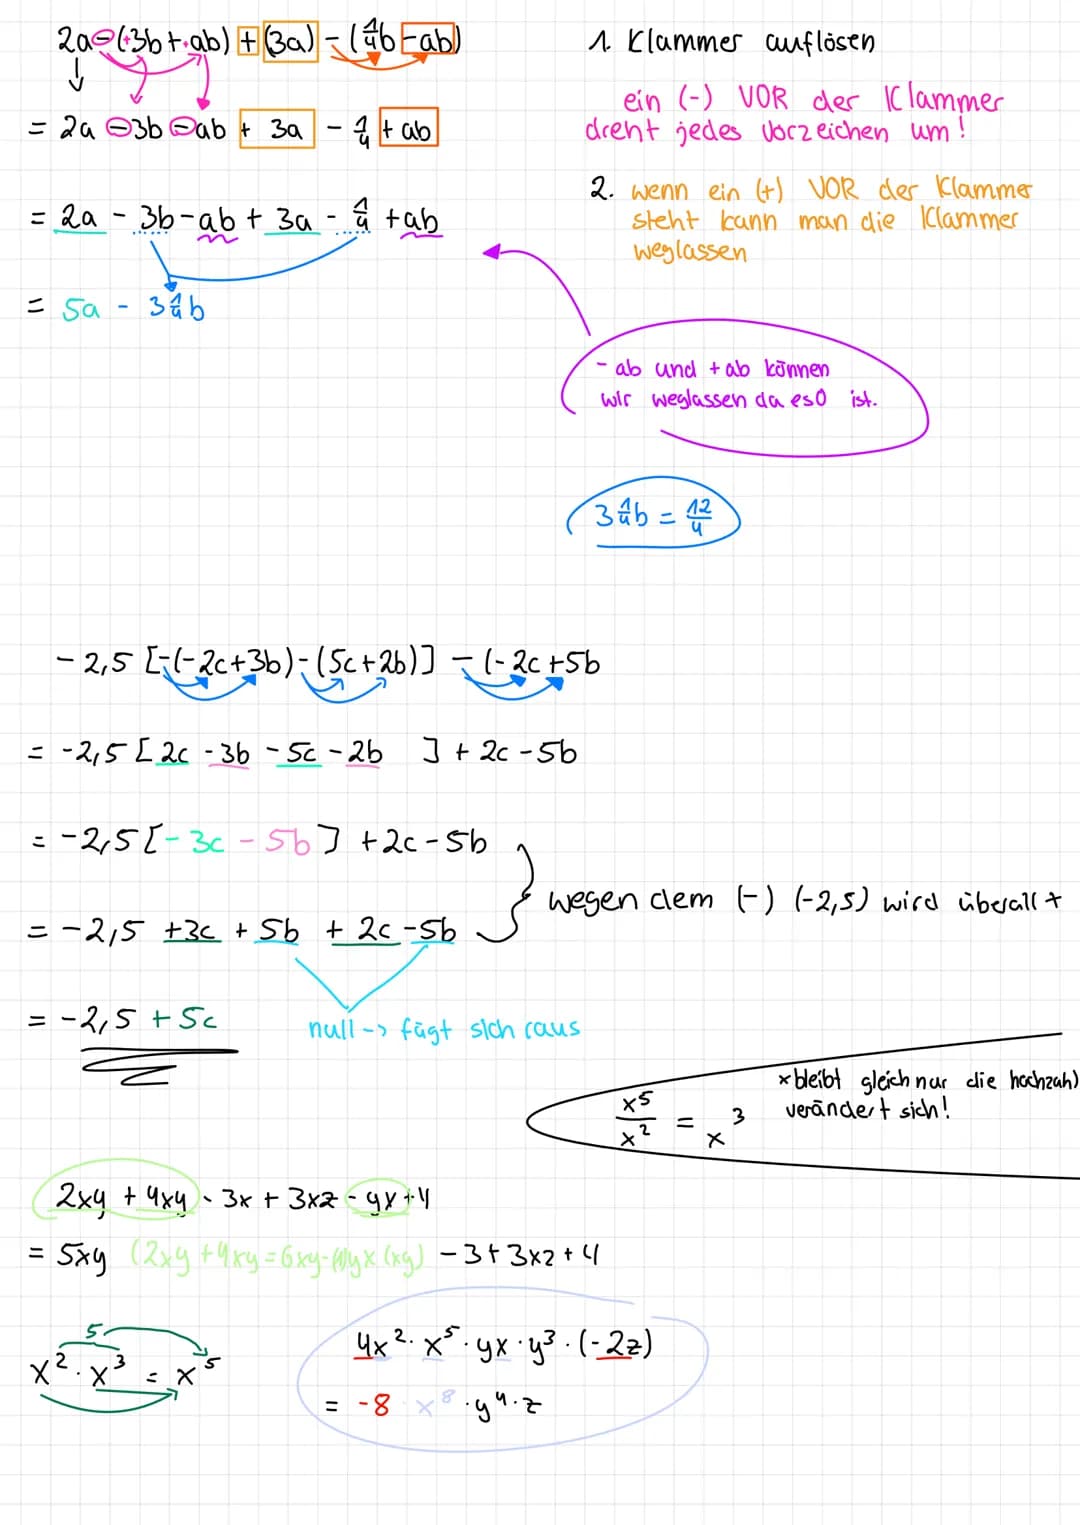 2a-(+3b+ab)+(3a)-(1/4b-ab)
1. Klammer auflösen
ein (-) VOR der Klammer
dreht jedes Vorzeichen um!
= 2a -3b -ab + 3a - 1/4 + ab
2. wenn ein (+) VOR der Klammer
steht kann man die Klammer
weglassen
= 2a - 3b-ab + 3a - 1/4 +ab
= 5a - 3 1/4 b
- ab und + ab können
wir weglassen da es 0 ist.
3 1/4 b = 12/4
-2,5 [-(-2c+3b)-(5c+2b)] -(-2c+5b
= -2,5 [2c -3b -5c -2b ] + 2c -5b
= -2,5[-3c -5b] +2c-5b
wegen dem (-) (-2,5) wird überall +
= -2,5 +3c + 5b + 2c -5b
= -2,5 + 5c
null -> fügt sich raus
x bleibt gleich nur die hochzahl
verändert sich!
x^5/x^2 = x^3
2xy + 4xy - 3x + 3xz - yx + 4
= 5xy (2xy +4xy = 6xy-(1)yx (xy) -3+3xz+4
5
x² · x³ = x⁵
4x² · x⁵ · yx · y³ · (-2z)
= -8 · x⁸ · y⁴ · z